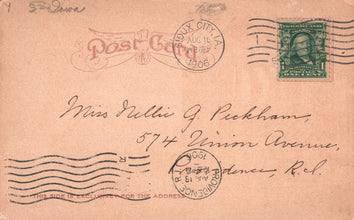 Post Card
SIOUX CITY, IA.
AUG 16
1906
Miss Nellie G. Peckham,
574 Union Avenue,
Providence, R.I.
PROVIDENCE R.I.
1906
THIS SIDE IS EXCLUSIVELY FOR THE ADDRESS